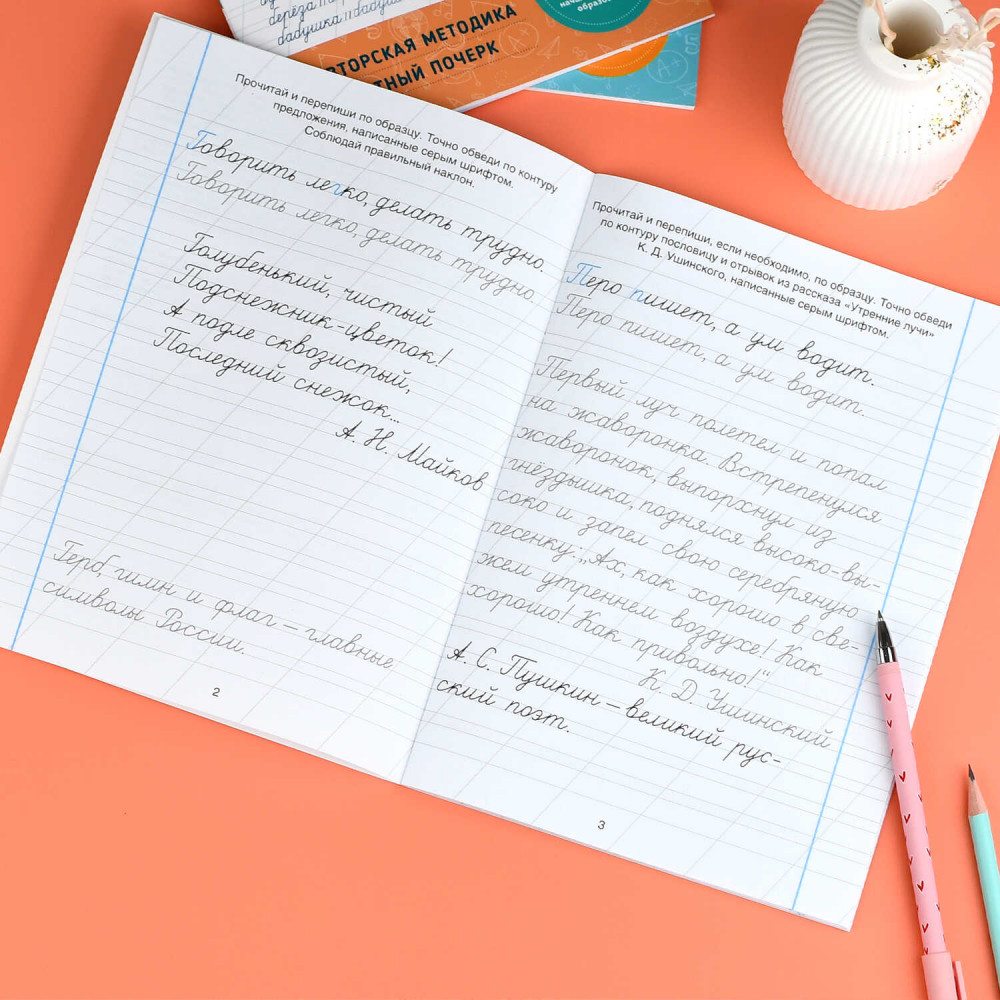 береза
бабушка
АВТОРСКАЯ МЕТОДИКА
ПОЧЕРК
Прочитай и перепиши по образцу. Точно обведи по контуру
предложения, написанные серым шрифтом.
Соблюдай правильный наклон.
Говорить легко, делать трудно.
Говорить легко, делать трудно.
Голубенький, чистый
Подснежник-цветок!
А подле сквозистый,
Последний снежок...
А. Н. Майков
Герб, гимн и флаг – главные
символы России.
2
Прочитай и перепиши, если необходимо, по образцу. Точно обведи
по контуру пословицу и отрывок из рассказа «Утренние лучи»
К. Д. Ушинского, написанные серым шрифтом.
Перо пишет, а ум водит.
Перо пишет, а ум водит.
Первый луч полетел и попал
на жаворонка. Встрепенулся
жаворонок, выпорхнул из
гнёздышка, поднялся высоко-вы-
соко и запел свою серебряную
песенку: „Ах, как хорошо в све-
жем утреннем воздухе! Как
хорошо! Как привольно!“
К. Д. Ушинский
А. С. Пушкин – великий рус-
ский поэт.
3